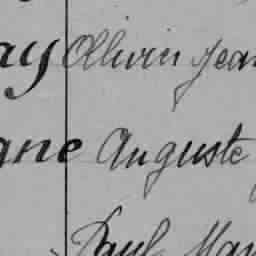 ay Ollivier Jean
gne Auguste
Paul Mar